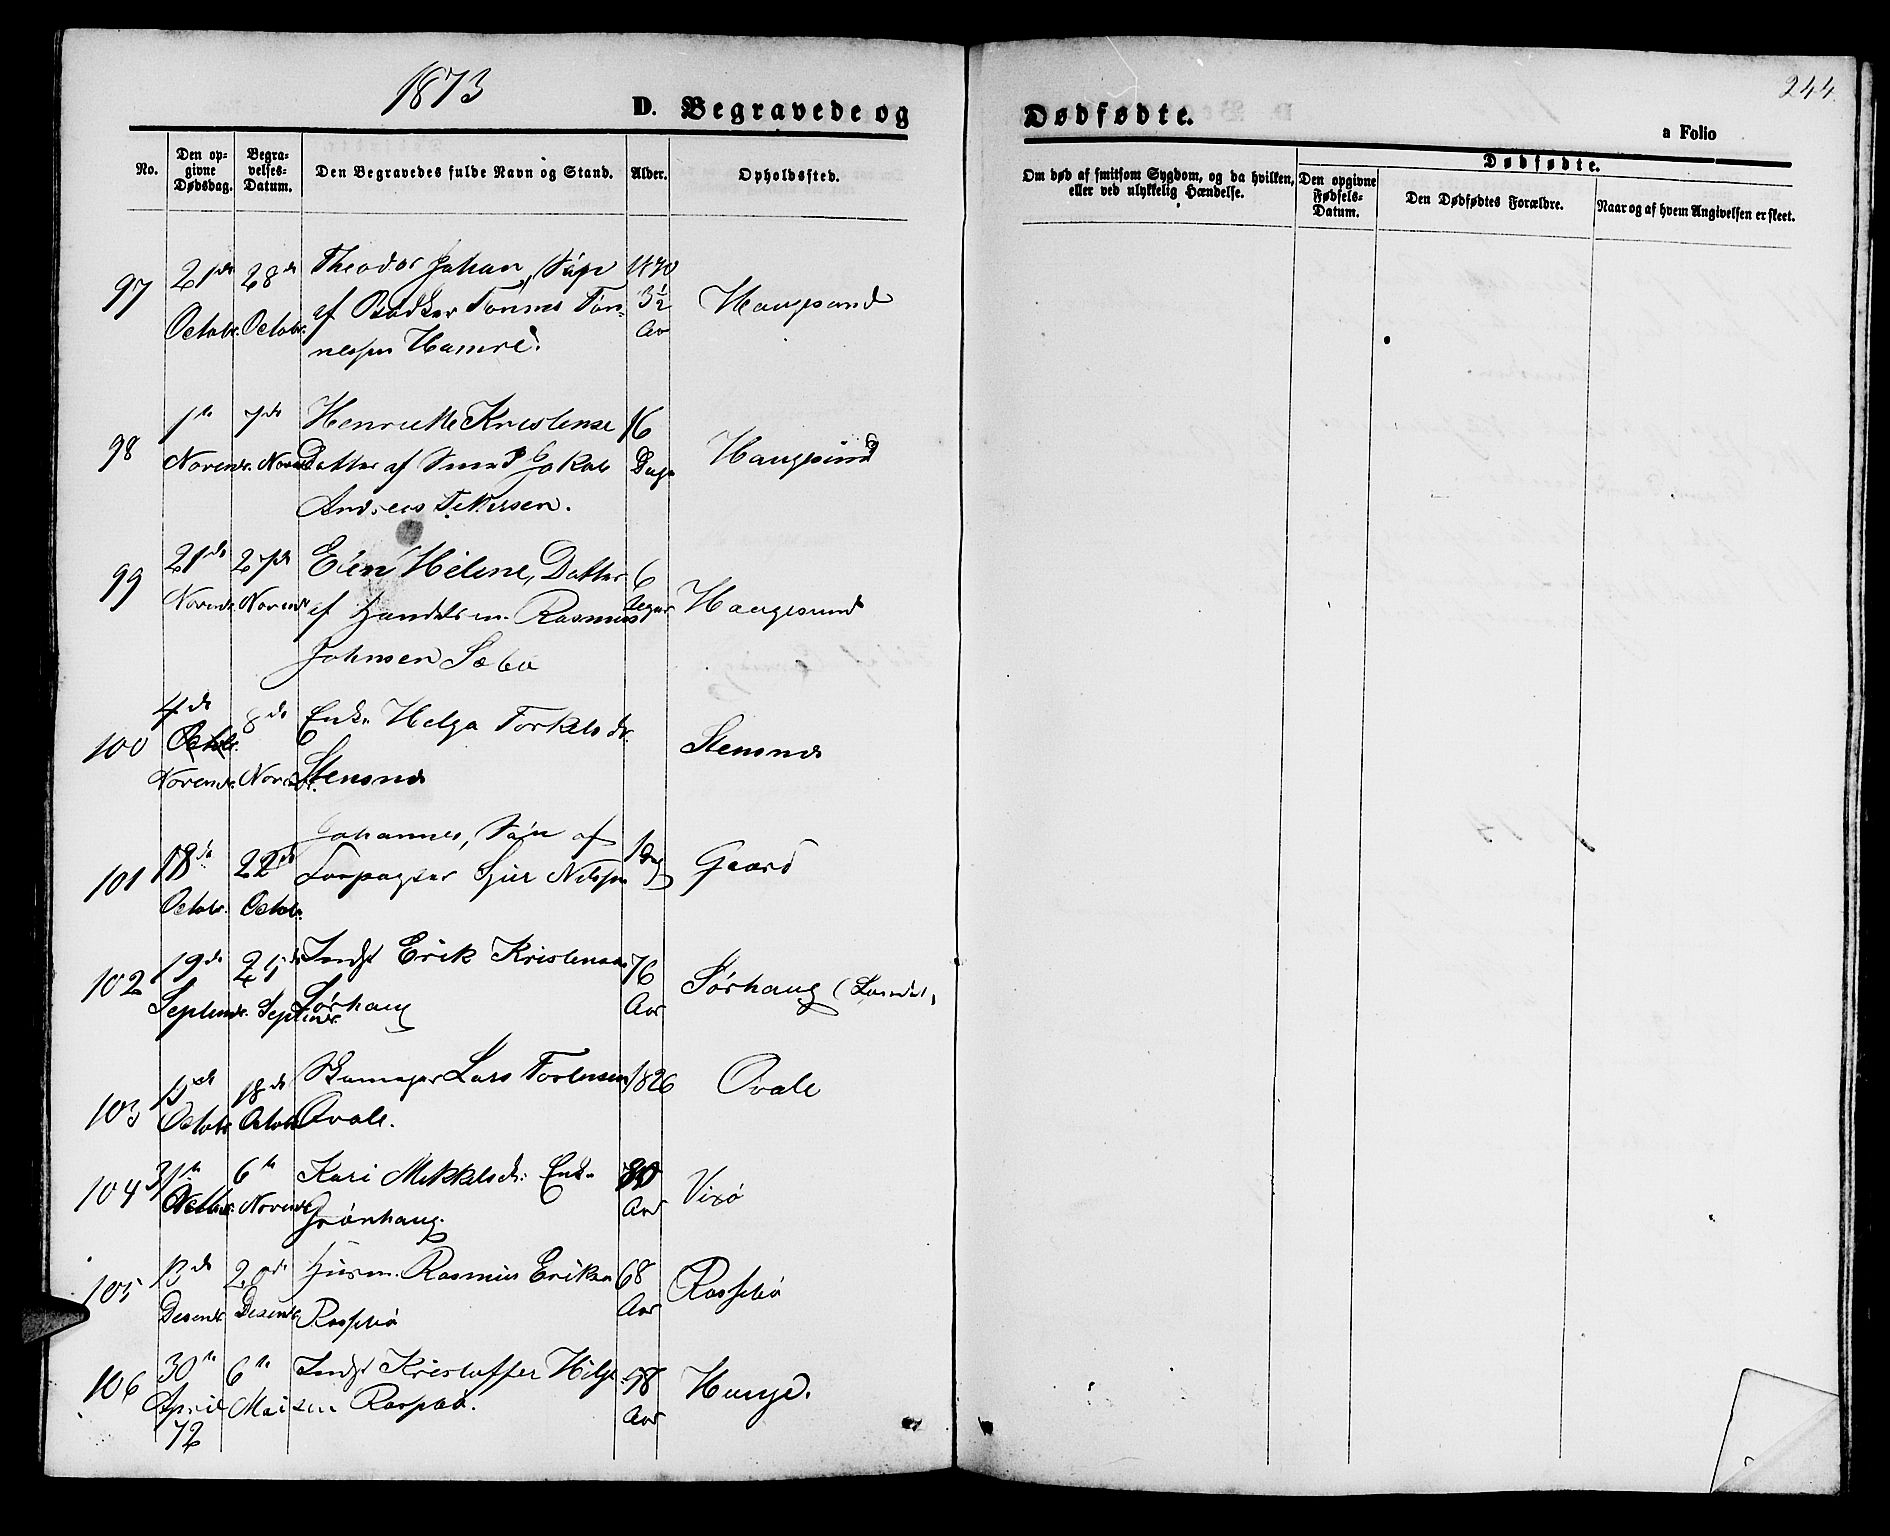 1873
D. Begravede og
No.
Den op-
givne
Dødsdag.
Begra-
velses-
Datum.
Den Begravedes fulde Navn og Stand.
Alder.
Opholdssted.
97
21de
Octobr.
28de
Octobr.
Theodor Johan, Søn
af Bødker Tønnes Tøn-
nessen Hamre.
1870
3½
Aar
Haugesund
98
1te
Novembr.
7de
Novbr
Henriette Kristense
Datter af Smed Jakob
Andreas
16
Dage
Haugesund
99
21de
Novembr
27de
Novembr
Elen Helene, Datter
af Handelsm. Rasmus
Johnsen Sæbø
6
Haugesund
100
4de
Octobr.
Novembr.
8de
Novbr.
Enke Helga Torkelsdr.
Stensnes
Stensnes
101
18de
Octobr.
22de
Octobr.
Johannes, Søn af
Forpagter Sjur Nilssen
1 Dag
Gaard
102
19de
Septembr.
25de
Septembr.
Indst Erik Kristensen
Sørhaug
76
Aar
Sørhaug
103
15de
Octobr
18de
Octobr
Lars Torbensen
Qvale.
1826
Qvale
104
31te
Octbr.
6te
Novembr
Kari Mikkelsdr. Enke
Grønhaug.
80
Aar
Vixø
105
13de
Desembr
20de
Desembr
Husm. Rasmus Eriksen
Rossebø
68
Aar
Rossebø
106
30te
April
72
6te
Mai
Indst Kristoffer Helge-
sen Rossebø.
98
Aar
Hauge.
Dødfødte.
244.
a Folio
Om død af smitsom Sygdom, og da hvilken,
eller ved ulykkelig Hændelse.
Dødfødte.
Den opgivne
Fødsels-
Datum.
Den Dødfødtes Forældre.
Naar og af hvem Angivelsen er skeet.